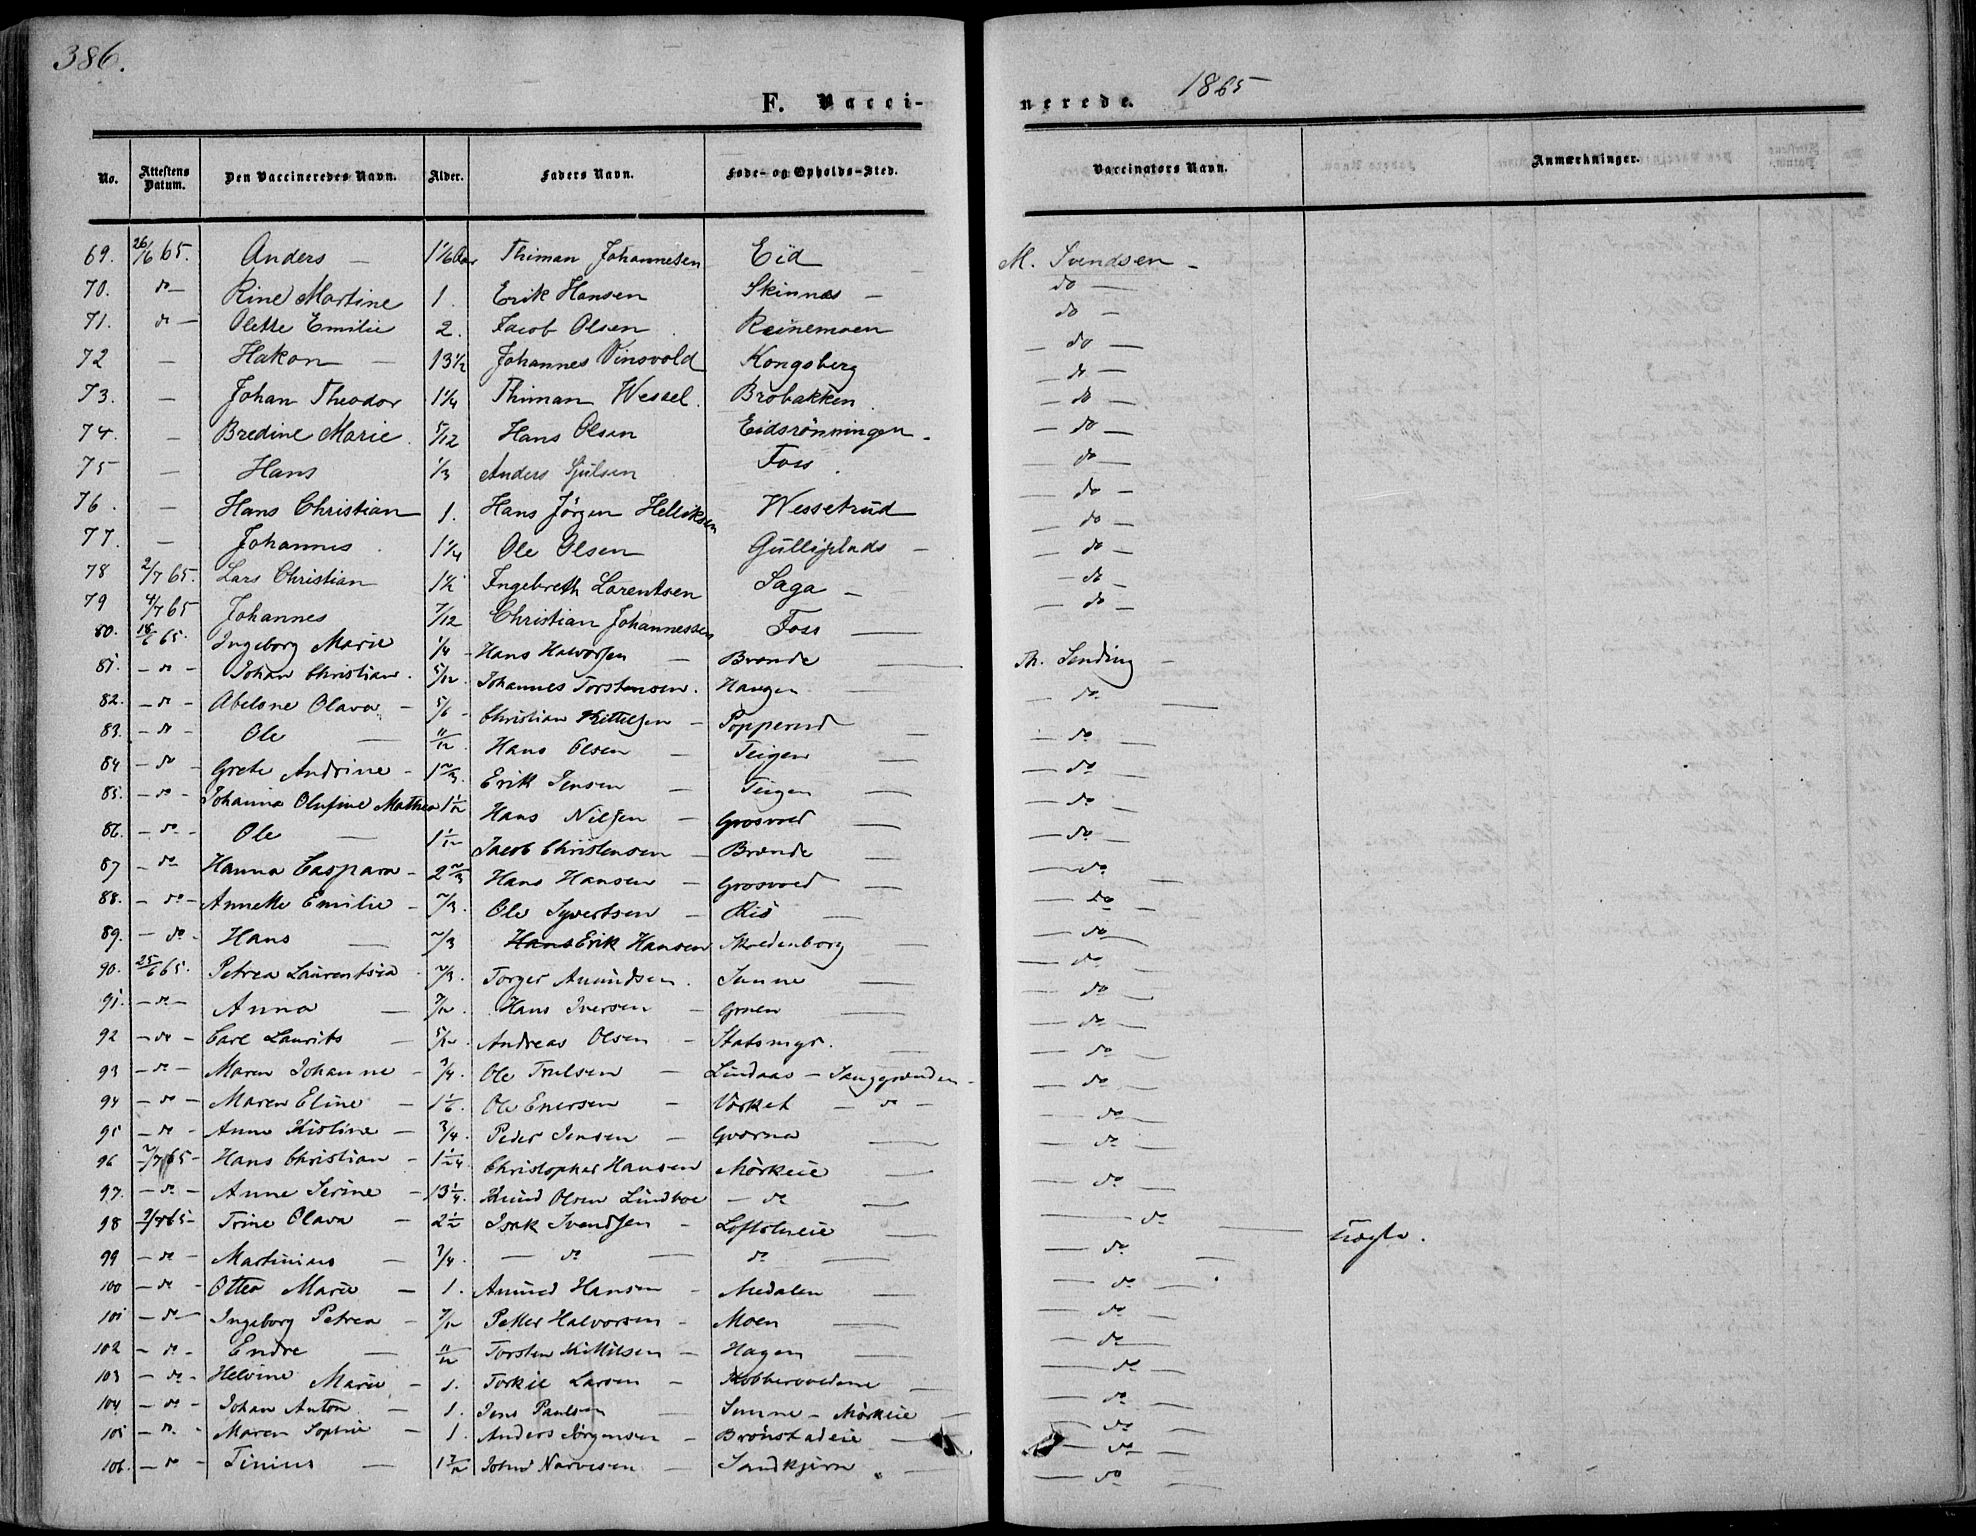 386.
1865
F. Vacci-
nerede.
No. Attestens Datum. Den Vaccineredes Navn. Alder. Faders Navn. Føde- og Opholds-Sted. Vaccinators Navn. Anmærkninger.
69. 26/6 65. Anders — 1 1/6 Aar Thiman Johannesen Eid M. Svendsen —
70. do — Rine Martine 1. Erik Hansen Skinnes — do —
71. do — Olette Emilie 2. Jacob Olsen Reinemoen do —
72 — Hakon — 13 1/2 Johannes Vinsvold Kongsberg — do —
73. — Johan Theodor 1 1/4 Thiman Wessel. Brobakken — do —
74. — Bredine Marie. 5/12 Hans Olsen Eidsrönningen — do —
75 — Hans 1/3 Anders Gulsen Foss. — do —
76. — Hans Christian 1. Hans Jörgen Helliksen Wessetrud — do —
77. — Johannes 1 1/4 Ole Olsen — do —
78 2/7 65. Lars Christian 1 1/2 Ingebreth Larentsen Saga — do —
79 4/7 65 Johannes 7/12 Christian Johannessen Foss — do —
80. 18/6 65. Ingeborg Marie 1/4 Hans Halvorsen — Brænde — Th. Sending —
81. — do — Johan Christian. 5/12. Johannes Torstensen. Haugen — do —
82. — do — Abelone Olava — 5/6 Christian Kittelsen — Popperud — do —
83. — do — Ole — 11/12 Hans Olsen — Teigen — do —
84 — do — Grete Andrine — 1 2/3. Erik Jensen — Teigen — do —
85. — do — Johanna Olufine Mathea 1 1/12 Hans Nilsen — Grosvold — do —
86. — do — Ole — 1 1/12 Jacob Christensen — Brænde — do —
87 — do — Hanna Caspara — 2 2/3 Hans Hansen — Grosvold — do —
88. — do — Annette Emilie — 2/3. Ole Syvertsen — Riis — do —
89. — do — Hans — 2/3 Erik Hansen — do —
90. 25/6 65. Petrea Laurentsia 2/3. Torger Amundsen. Sunne — do —
91. — do — Anna — 7/12. Hans Iversen — Gruen — do —
92 — do — Carl Laurits — 5/12 Andreas Olsen — Statsmyr. — do —
93 — do — Maren Johanne — 3/4. Ole Trulsen — Lindaas — — do —
94 — do — Maren Eline — 1 1/6. Ole Enersen — Værket — do — do —
95 — do — Anne Kistine — 3/4. Peder Jensen — Gværna — do —
96 2/7 65 — Hans Christian — 1 1/24. Christopher Hansen Mörkeie — do —
97. — do — Anne Serine — 13 1/4. Knud Olsen Lindboe — do — do —
98 9/7 65 — Trine Olava — 2 1/2 Isak Svendsen — Loftstueie — do —
99 — do — Martinius — 3/4. — do — do — do —
100 — do — Ottea Marie — 1. Amund Hansen — Medalen — do —
101 — do — Ingeborg Petrea — 7/12 Petter Halvorsen — Moen — do —
102 — do — Endre — 11/12 Torsten Kittilsen — Hagen — do —
103 — do — Helvine Marie — 1. Torkil Larsen — Kobbervoldene — do —
104 — do — Johan Anton — 1. Jens Paulsen — Sunne — Mörkeie — do —
105 — do — Maren Sophie — 1. Anders Jörgensen — Brönstadeie — do —
106. — do — Tinius — John Narvesen — Sandkjærn — do —